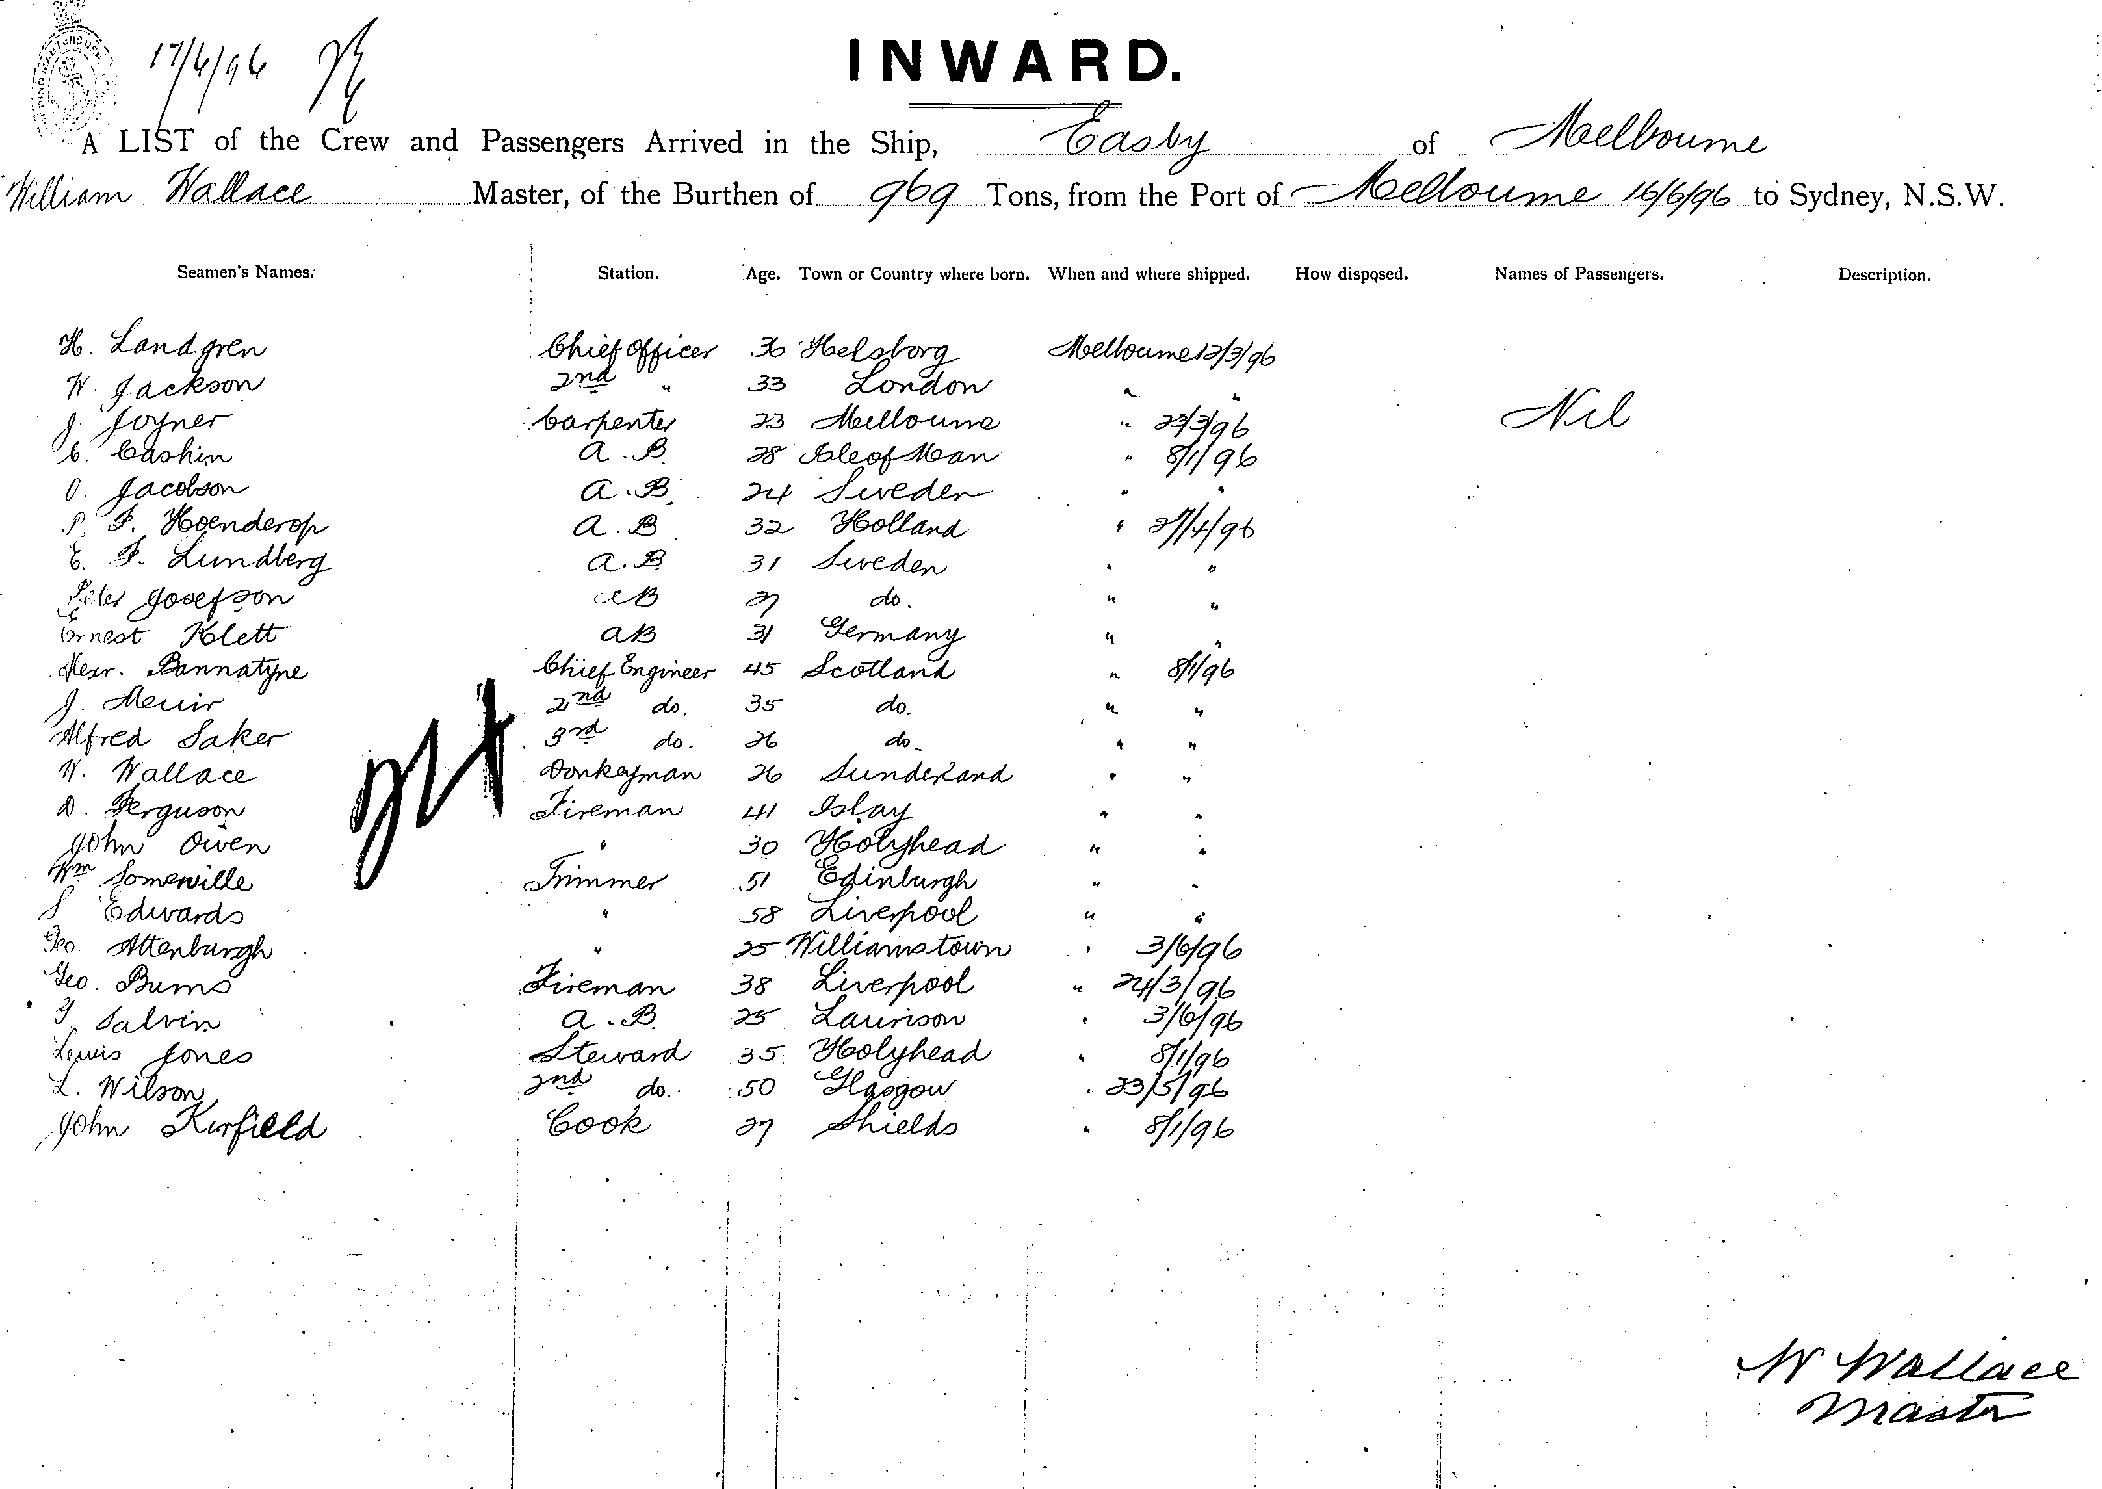 17/6/96
INWARD.
A LIST of the Crew and Passengers Arrived in the Ship, Easby of Melbourne
William Wallace Master, of the Burthen of 969 Tons, from the Port of Melbourne 16/6/96 to Sydney, N.S.W.
Seamen's Names. Station. Age. Town or Country where born. When and where shipped. How disposed. Names of Passengers. Description.
H. Landgren Chief Officer 30 Helsborg Melbourne 12/3/96
W. Jackson 2nd " 33 London " "
J. Joyner Carpenter 23 Melbourne " 23/3/96 Nil
C. Cashin A.B. 28 Isle of Man " 8/1/96
O. Jacobson A.B. 24 Sweden " "
P. F. Hoenderop A.B 32 Holland " 27/4/96
E. F. Lundberg A.B 31 Sweden " "
Peter Josefson AB 27 do. " "
Ernest Klett AB 31 Germany " "
Alexr. Bannatyne Chief Engineer 45 Scotland " 8/1/96
J. Meuir 2nd do. 35 do. " "
Alfred Saker 3rd do. 26 do. " "
W. Wallace Donkeyman 26 Sunderland " "
D. Ferguson Fireman 41 Islay " "
John Owen " 30 Holyhead " "
Wm Somerville Trimmer 51 Edinburgh " "
S Edwards " 58 Liverpool " "
Geo. Attenburgh " 25 Williamstown " 3/6/96
Geo. Burns Fireman 38 Liverpool " 24/3/96
Salvin A.B. 25 Laurison " 3/6/96
Lewis Jones Steward 35 Holyhead " 8/1/96
L. Wilson 2nd do. 50 Glasgow " 23/5/96
John Kirfield Cook 27 Shields " 8/1/96
W Wallace
Master